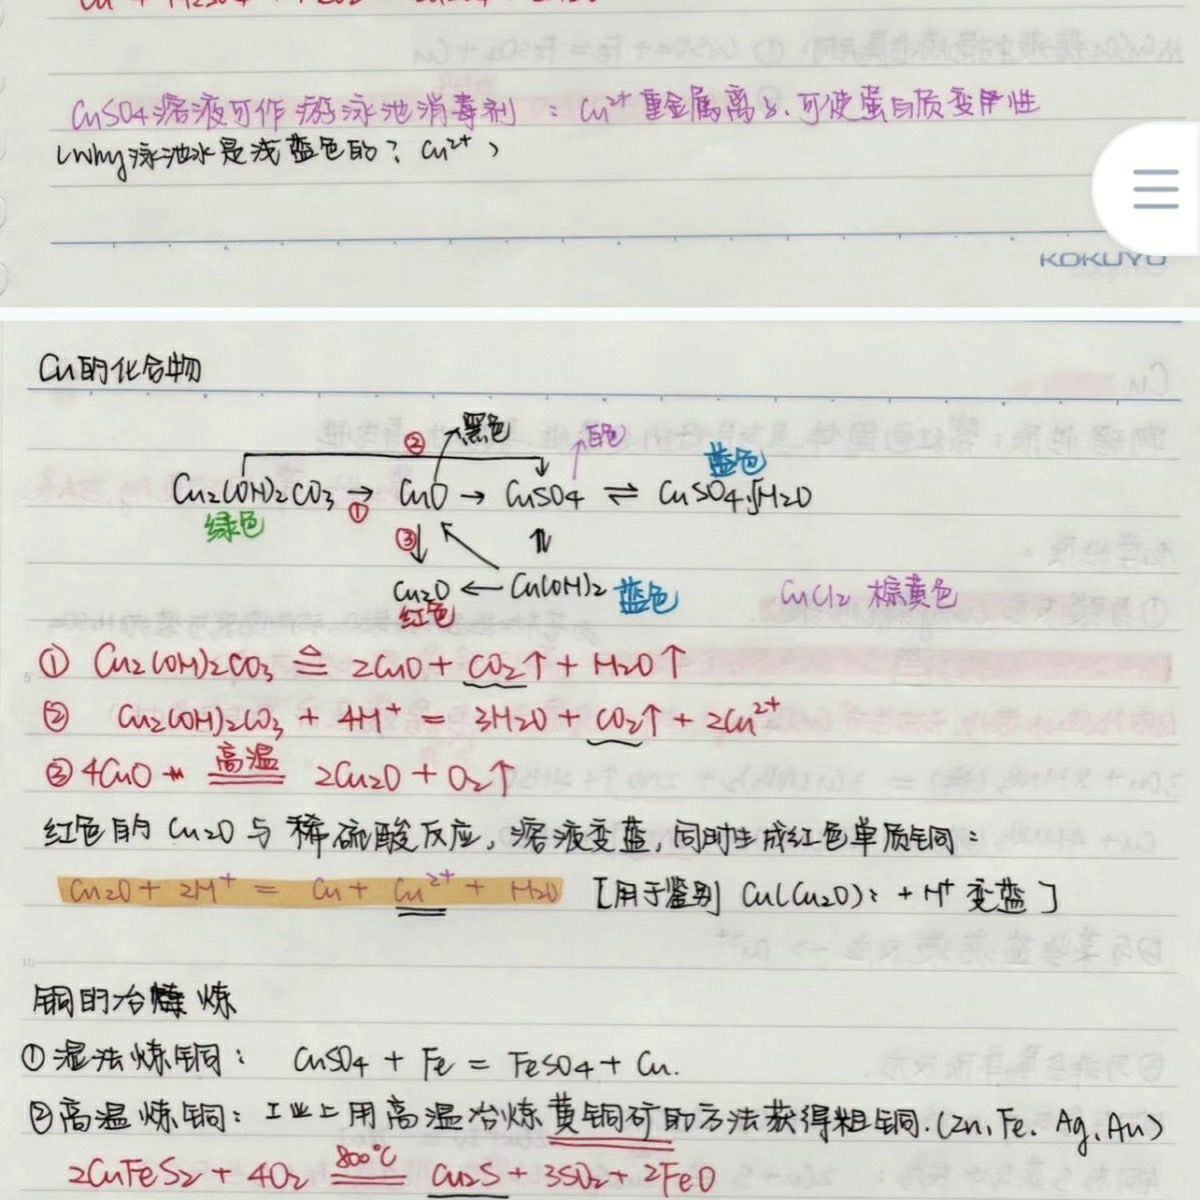 CuSO4溶液可作游泳池消毒剂：Cu²⁺重金属离子,可使蛋白质变性
(Why泳池水是浅蓝色的？Cu²⁺)
KOKUYO
Cu的化合物
② 黑色 白色 蓝色
Cu2(OH)2CO3 → CuO → CuSO4 ⇌ CuSO4·5H2O
绿色 ① ③
Cu2O ← Cu(OH)2 蓝色 CuCl2 棕黄色
红色
① Cu2(OH)2CO3 ≜ 2CuO + CO2↑ + H2O↑
② Cu2(OH)2CO3 + 4H⁺ = 3H2O + CO2↑ + 2Cu²⁺
③ 4CuO 高温 2Cu2O + O2↑
红色的Cu2O与稀硫酸反应,溶液变蓝,同时生成红色单质铜：
Cu2O + 2H⁺ = Cu + Cu²⁺ + H2O [用于鉴别 Cu(Cu2O)：+H⁺ 变蓝]
5
10
铜的冶炼
① 湿法炼铜： CuSO4 + Fe = FeSO4 + Cu.
② 高温炼铜：工业上用高温冶炼黄铜矿的方法获得粗铜.(Zn、Fe、Ag、Au)
2CuFeS2 + 4O2 800℃ Cu2S + 3SO2 + 2FeO